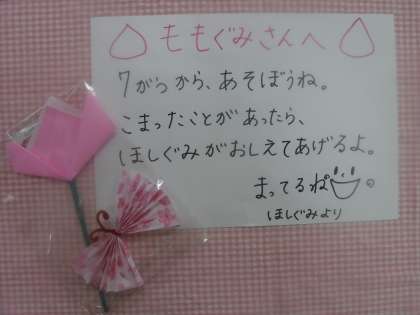 ももぐみさんへ
7がつから、あそぼうね。
こまったことがあったら、
ほしぐみがおしえてあげるよ。
まってるね。
ほしぐみより